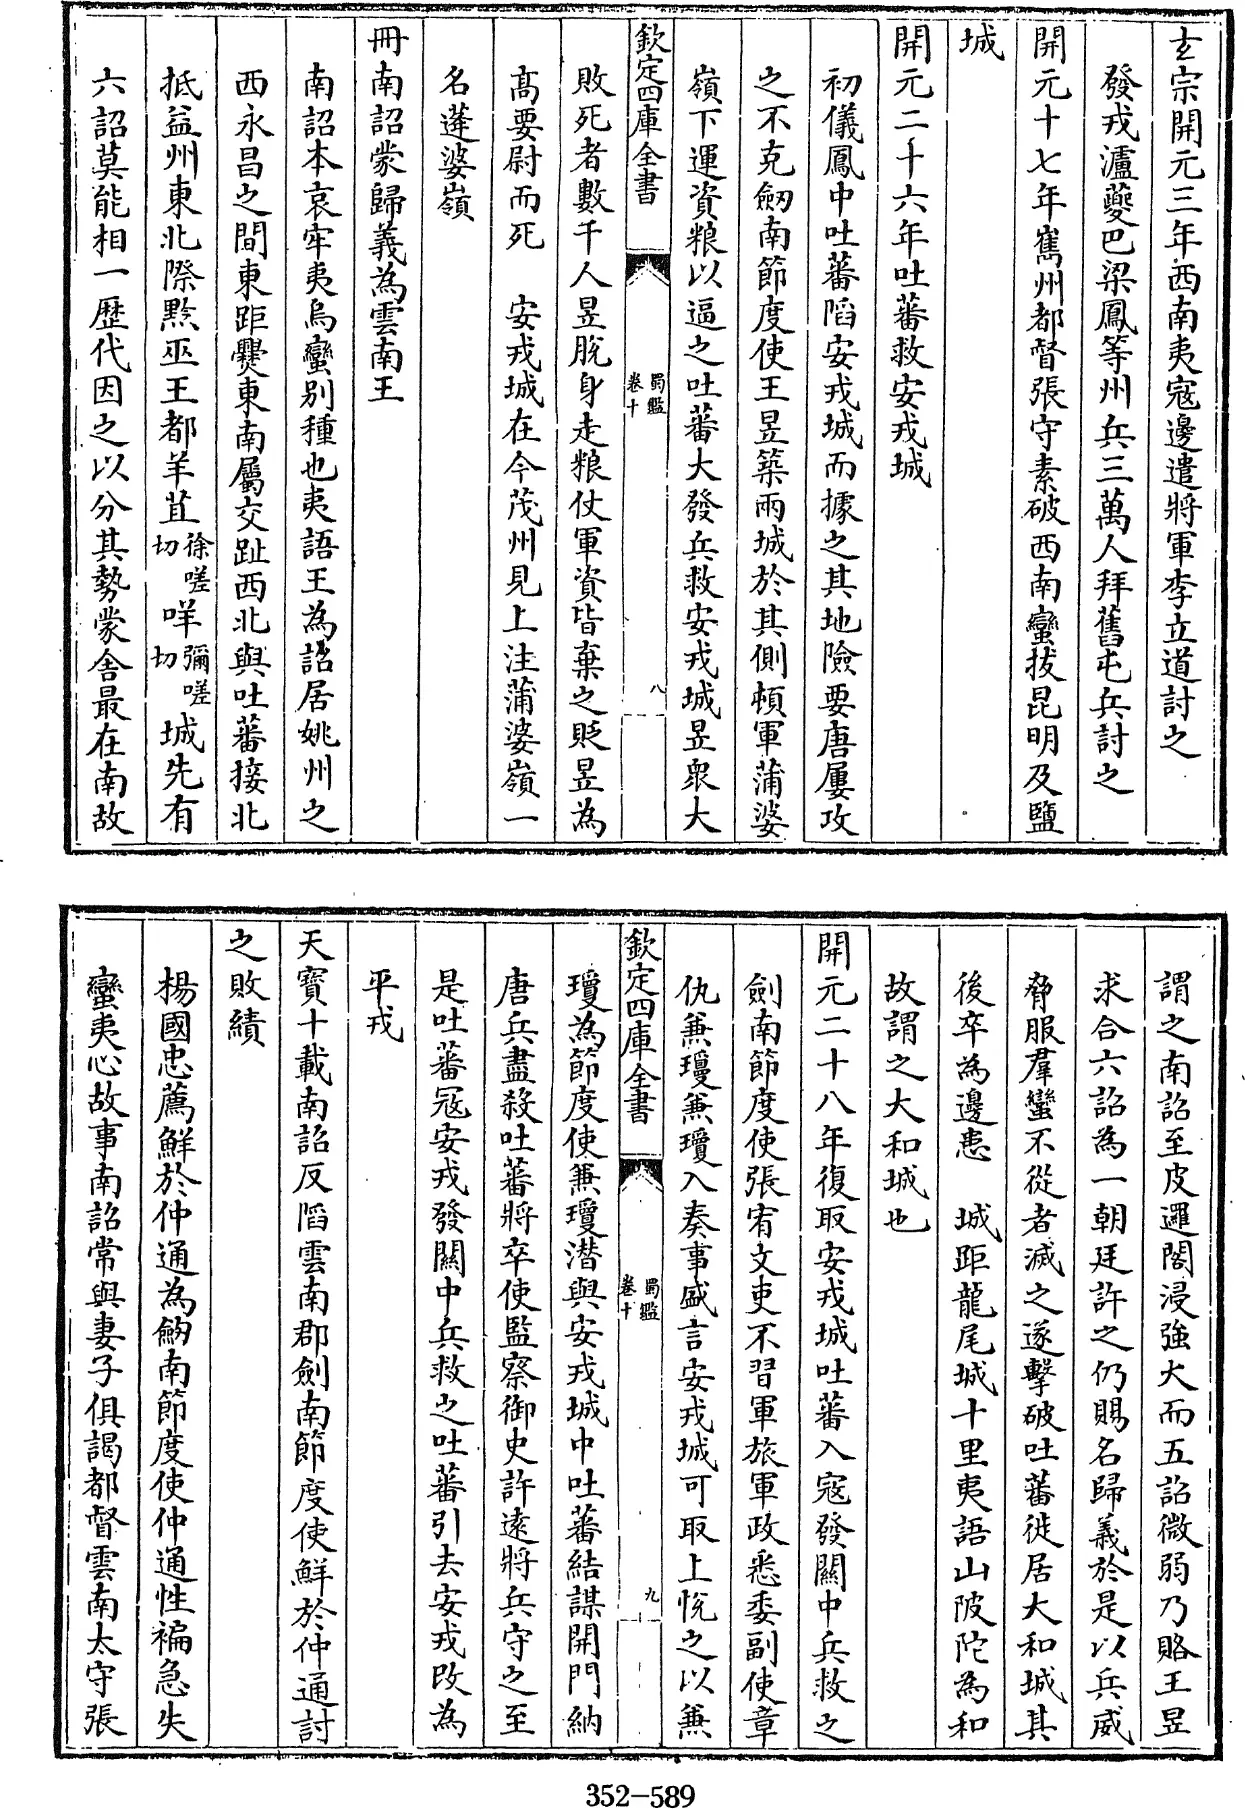 玄宗開元三年西南夷寇邊遣將軍李立道討之
發戎瀘夔巴梁鳳等州兵三萬人拜舊屯兵討之
開元十七年嶲州都督張守素破西南蠻拔昆明及鹽
城
開元二十六年吐蕃救安戎城
初儀鳳中吐蕃陷安戎城而據之其地險要唐屢攻
之不克劒南節度使王昱築兩城於其側頓軍蒲婆
嶺下運資粮以逼之吐蕃大發兵救安戎城昱衆大
欽定四庫全書
蜀鑑
卷十
八
敗死者數千人昱脫身走粮仗軍資皆棄之貶昱為
髙要尉而死 安戎城在今茂州見上注蒲婆嶺一
名蓬婆嶺
冊南詔蒙歸義為雲南王
南詔本哀牢夷烏蠻別種也夷語王為詔居姚州之
西永昌之間東距爨東南屬交趾西北與吐蕃接北
抵益州東北際黔巫王都羊苴徐嗟切咩彌嗟切城先有
六詔莫能相一歷代因之以分其勢蒙舍最在南故
謂之南詔至皮邏閣浸強大而五詔微弱乃賂王昱
求合六詔為一朝廷許之仍賜名歸義於是以兵威
脅服羣蠻不從者滅之遂擊破吐蕃徙居大和城其
後卒為邊患 城距龍尾城十里夷語山陂陀為和
故謂之大和城也
開元二十八年復取安戎城吐蕃入寇發關中兵救之
劍南節度使張宥文吏不習軍旅軍政悉委副使章
仇兼瓊兼瓊入奏事盛言安戎城可取上悅之以兼
欽定四庫全書
蜀鑑
卷十
九
瓊為節度使兼瓊潛與安戎城中吐蕃結謀開門納
唐兵盡殺吐蕃將卒使監察御史許遠將兵守之至
是吐蕃冦安戎發關中兵救之吐蕃引去安戎改為
平戎
天寶十載南詔反陷雲南郡劍南節度使鮮於仲通討
之敗績
楊國忠薦鮮於仲通為劒南節度使仲通性褊急失
蠻夷心故事南詔常與妻子俱謁都督雲南太守張
352-589